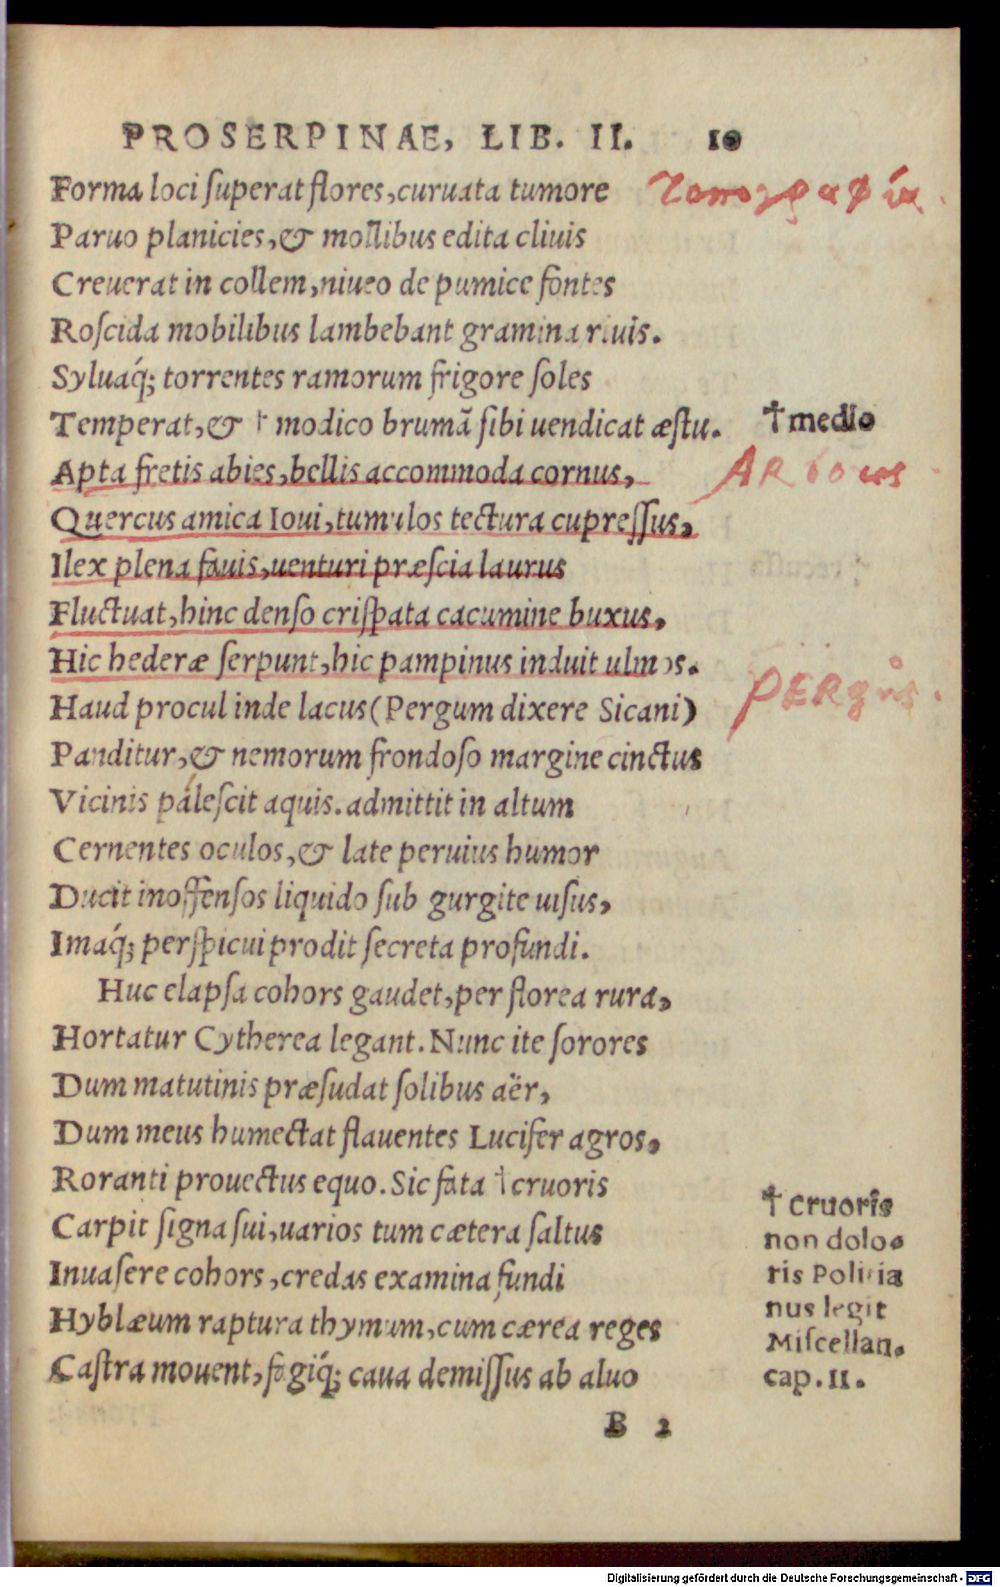 PROSERPINAE, LIB. II. 10
Forma loci superat flores, curuata tumore
τοπογραφία.
Paruo planicies, & mollibus edita cliuis
Creuerat in collem, niueo de pumice fontes
Roscida mobilibus lambebant gramina riuis.
Syluaq́; torrentes ramorum frigore soles
Temperat, & † modico brumā sibi uendicat æstu.
† medio
Apta fretis abies, bellis accommoda cornus,
Arbores
Quercus amica Ioui, tumulos tectura cupressus,
Ilex plena fauis, uenturi præscia laurus
Fluctuat, hinc denso crispata cacumine buxus,
Hic hederæ serpunt, hic pampinus induit ulmos.
Pergus.
Haud procul inde lacus (Pergum dixere Sicani)
Panditur, & nemorum frondoso margine cinctus
Vicinis pálescit aquis. admittit in altum
Cernentes oculos, & late peruius humor
Ducit inoffensos liquido sub gurgite uisus,
Imaq́; perspicui prodit secreta profundi.
Huc elapsa cohors gaudet, per florea rura,
Hortatur Cytherea legant. Nunc ite sorores
Dum matutinis præsudat solibus aër,
Dum meus humectat flauentes Lucifer agros,
Roranti prouectus equo. Sic fata † cruoris
Carpit signa sui, uarios tum cætera saltus
Inuasere cohors, credas examina fundi
Hyblæum raptura thymum, cum cærea reges
Castra mouent, fagiq́; caua demissus ab aluo
† cruoris
non dolo=
ris Politia
nus legit
Miscellan.
cap. II.
B 2
Digitalisierung gefördert durch die Deutsche Forschungsgemeinschaft - DFG